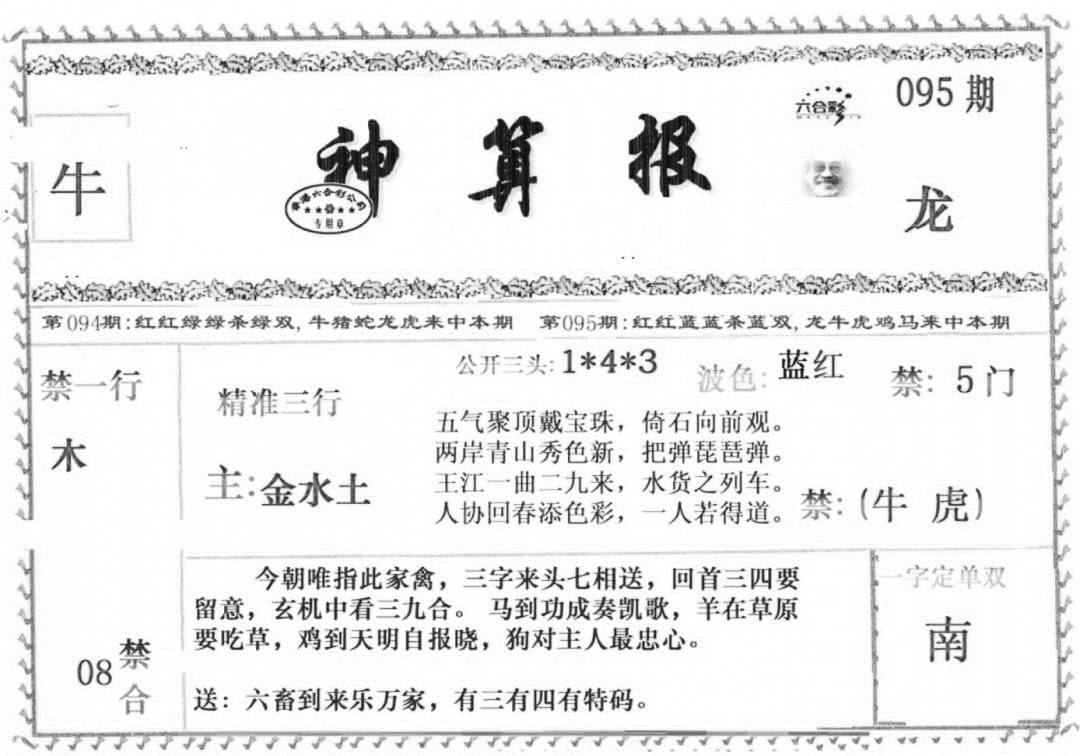 095期
六合彩
牛
神算报
香港六合彩公司
专用章
龙
第094期:红红绿绿杀绿双,牛猪蛇龙虎来中本期 第095期:红红蓝蓝杀蓝双,龙牛虎鸡马来中本期
禁一行
木
精准三行
主:金水土
公开三头:1*4*3
波色:蓝红
禁:5门
五气聚顶戴宝珠，倚石向前观。
两岸青山秀色新，把弹琵琶弹。
王江一曲二九来，水货之列车。
人协回春添色彩，一人若得道。
禁:(牛 虎)
08禁合
今朝唯指此家禽，三字来头七相送，回首三四要
留意，玄机中看三九合。 马到功成奏凯歌，羊在草原
要吃草，鸡到天明自报晓，狗对主人最忠心。
送：六畜到来乐万家，有三有四有特码。
一字定单双
南